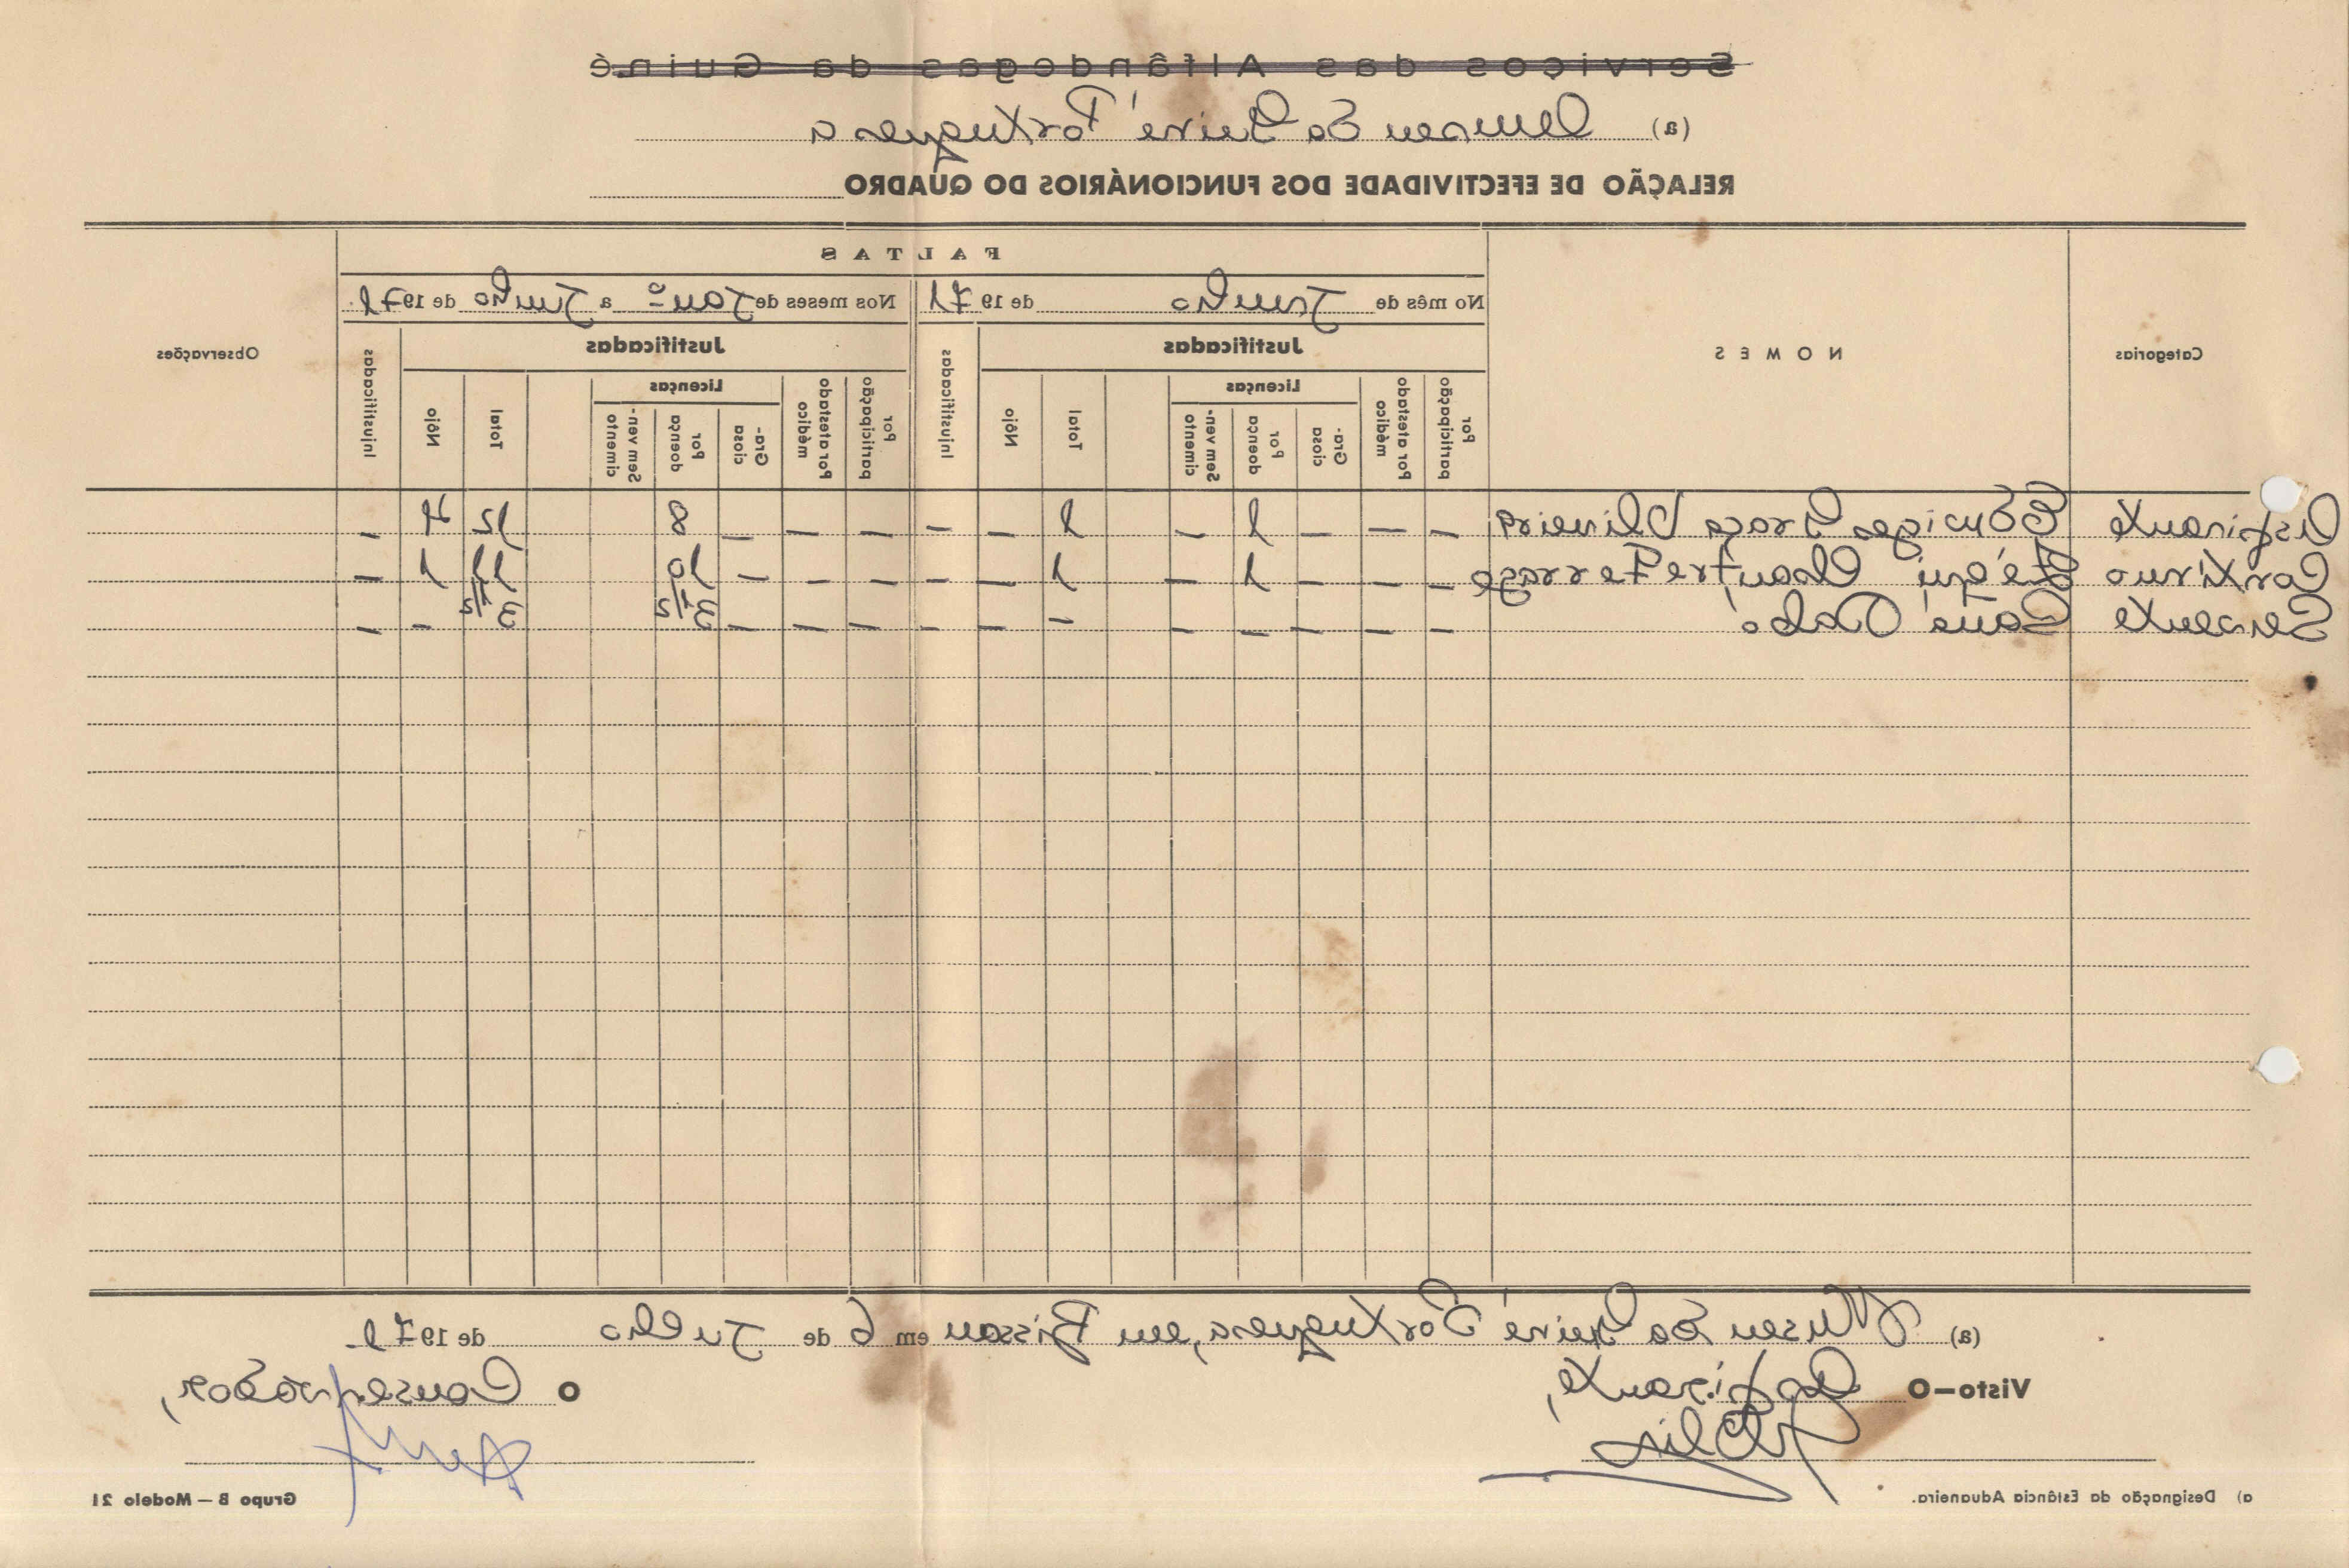 Serviços das Alfândegas da Guiné
(a) Museu da Guiné Portuguesa
RELAÇÃO DE EFECTIVIDADE DOS FUNCIONÁRIOS DO QUADRO
Categorias
NOMES
FALTAS
Observações
No mês de Junho de 1971
Nos meses de Jan.º a Junho de 1971
Justificadas
Injustificadas
Justificadas
Injustificadas
Por participação
Por atestado médico
Licenças
Graciosa
Por doença
Sem vencimento
Total
Nôjo
Por participação
Por atestado médico
Licenças
Graciosa
Por doença
Sem vencimento
Total
Nôjo
Aspirante — — — 1 — 1 — — — — — 8 — 12 4 —
Contínuo — — — 1 — 1 — — — — — 10 11 1 —
Servente — — — — — — — — — — — 31/2 31/2 — —
(a) Museu da Guiné Portuguesa, em Bissau em 6 de Julho de 1971
Visto—O Aspirante,
O Conservador,
a) Designação da Estância Aduaneira.
Grupo B — Modelo 21